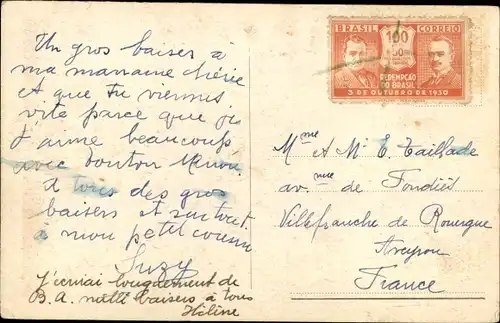 Un gros baiser à
ma marraine chérie
et que tu viennes
vite parce que je
t'aime beaucoup
avec tonton
à tous des gros
baisers et surtout
à mon petit cousin
Suzy
J'écrirai longuement de
B.A. mille baisers à tous
Hélène
BRASIL CORREIO
100
REDEMPÇÃO
DO BRASIL
3 DE OUTUBRO DE 1930
Mme & Mr E. Taillade
av.nue de Fondiès
Villefranche de Rouergue
Aveyron
France